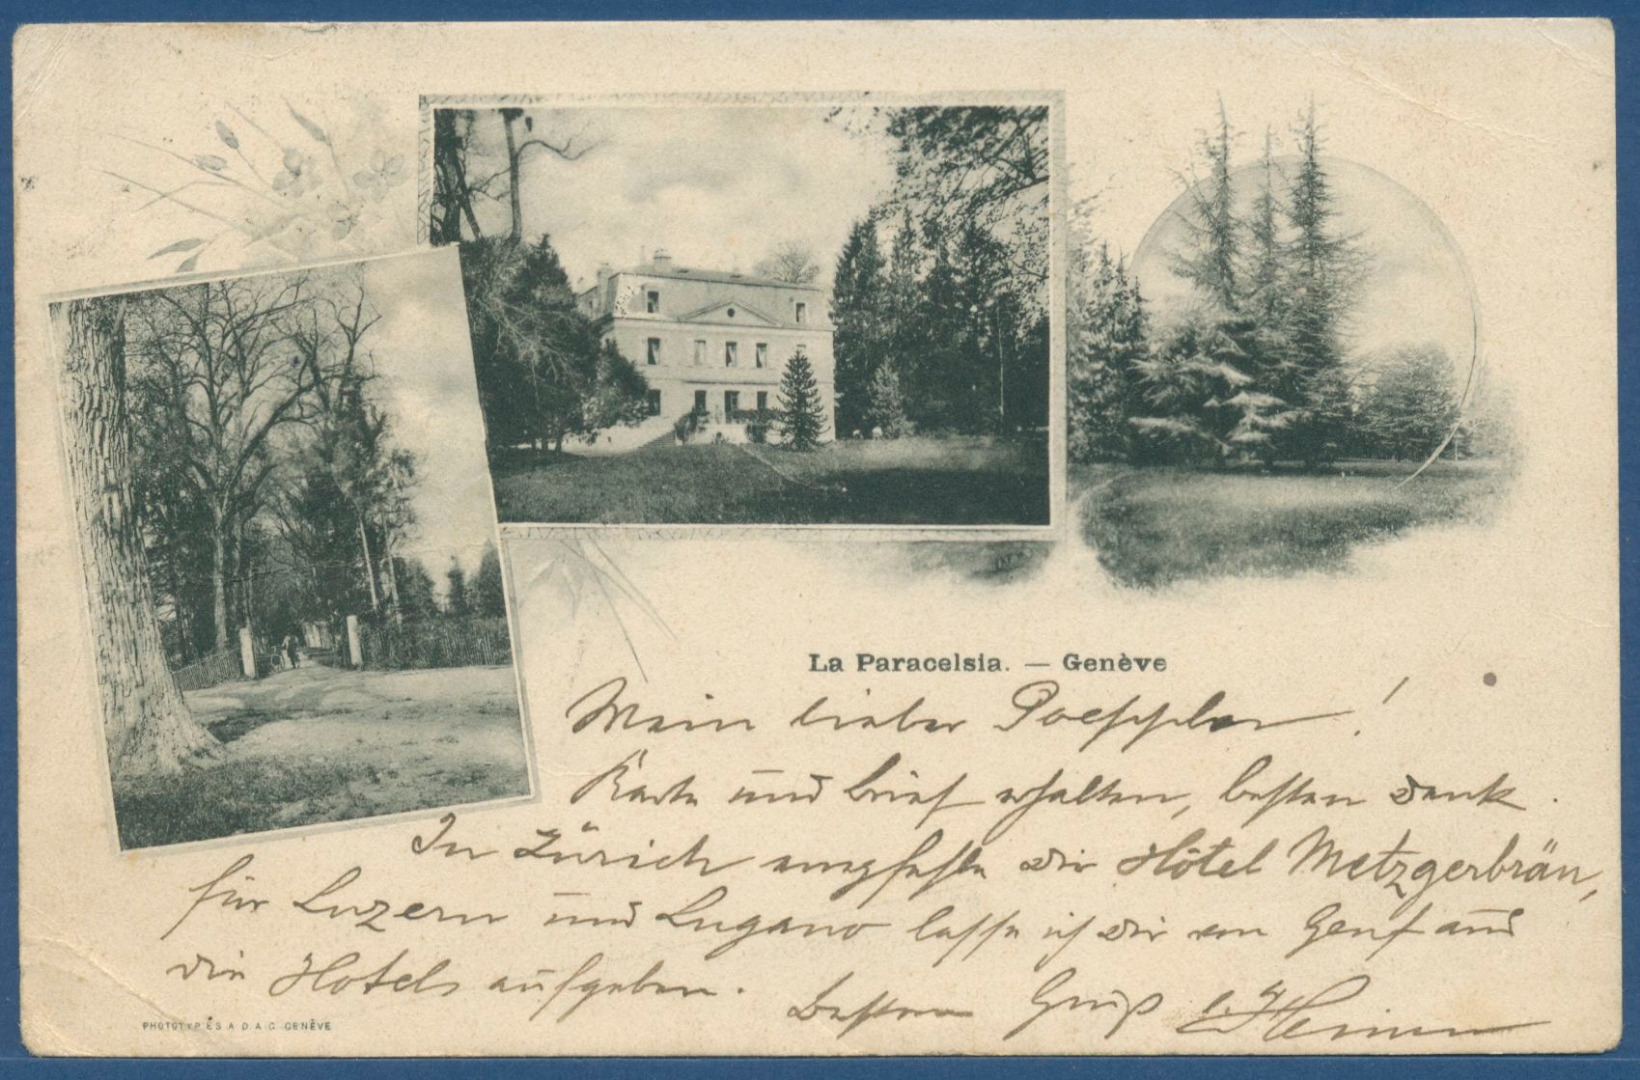 La Paracelsia. — Genève
Mein lieber Poeppler!
Karte und Brief erhalten, besten Dank.
In Zürich empfehle Dir Hôtel Metzgerbräu,
für Luzern und Lugano lasse ich Dir von Genf aus
die Hotels aufgeben.
Besten Gruß
PHOTOTYPIES A.D.A.C. GENÈVE